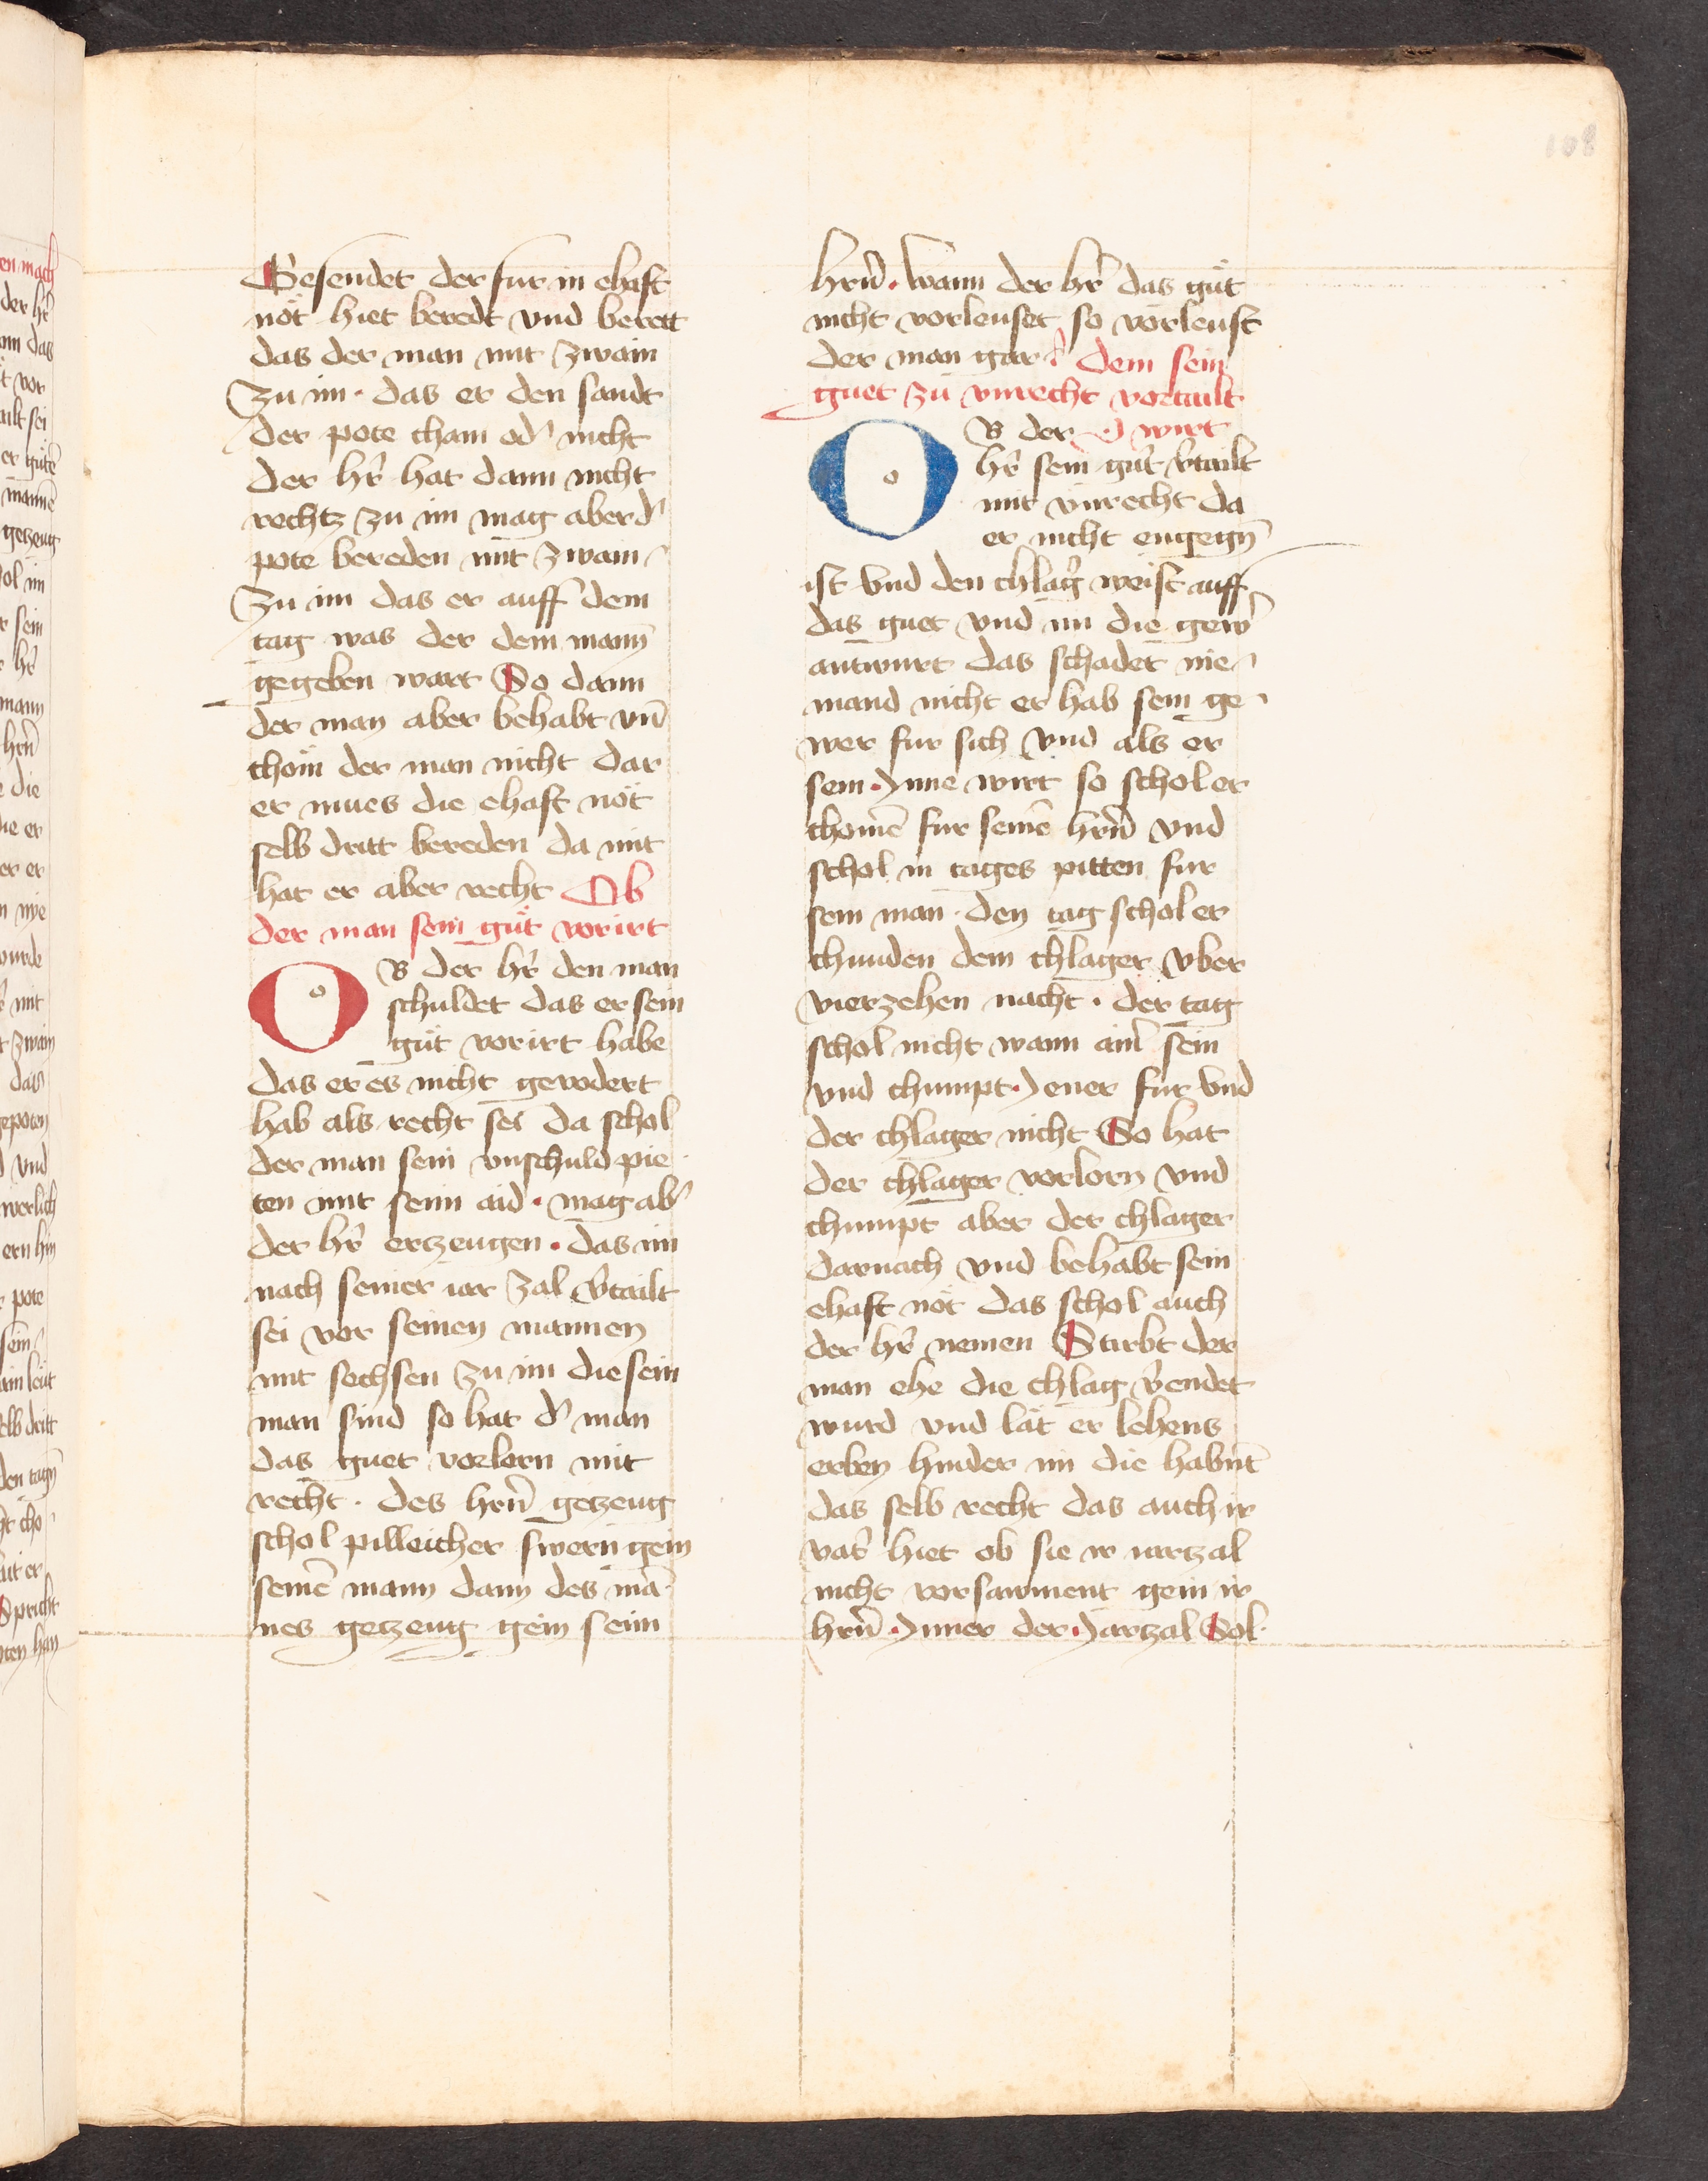 108
Gesendet der fur in ehaft
nöt hiet beredt vnd berett
das der man mit zwain
zu im · das er den sandt
der pote cham od' nicht
der hr̄ hat dann nicht
rechtz zu im mag aber d'
pote bereden mit zwain
zu im das er auff dem
tag was der dem mann
gegeben wart So dann
der man aber behabt vn̄
chöm der man nicht dar
er mues die ehaft nöt
selb dritt bereden da mit
hat er aber recht Ob
der man sein güt vorirt
OB der hr̄ den man
schuldet das er sein
güt vorirt habe
das er es nicht gevodert
hab als recht sei da schol
der man sein vnschuld pie
ten mit seim aid · mag ab'
der hr̄ erzeugen · das im
nach seiner iar zal v̄tailt
sei vor seinen mannen
mit sechsen zu im die sein
man sind so hat d' man
das guet vorlorn mit
recht · des hrn̄ getzeug
schol pilleicher swern gein
seinē mann dann des mā
nes getzeug gein seim
hrn̄ · wann der hr̄ das güt
nicht vorleuset so vorleust
der man gar dem sein
guet zu vnrecht vortailt
OB der wirt
hr̄ sein gut v̄tailt
mit vnrecht da
er nicht engegn̄
ist vnd den chlag' weist auff
das guet vnd im die gew'
antwurt das schadet nie
mand nicht er hab sein ge
wer fur sich vnd als er
sein · Jnne wirt so schol er
chomē fur seinē hrn̄ vnd
schol in tages pitten fur
sein man · den tag schol er
chunden dem chlager vber
vierzehen nacht · der tag
schol nicht wann ainr̄ sein
vnd chumpt · Jener fur vnd
der chlager nicht So hat
der chlager vorlorn vnd
chumpt aber der chlager
darnach vnd behabt sein
ehaft nöt das schol auch
der hr̄ nemen Stirbt der
man ehe die chlag v̄endet
wurd vnd lät er lehens
erben hinder im die habnt
das selb recht das auch ir
vat' hiet ob sie ir iartzal
nicht vorsawment gein ir
hrn̄ · Jnner der Jartzal Sol